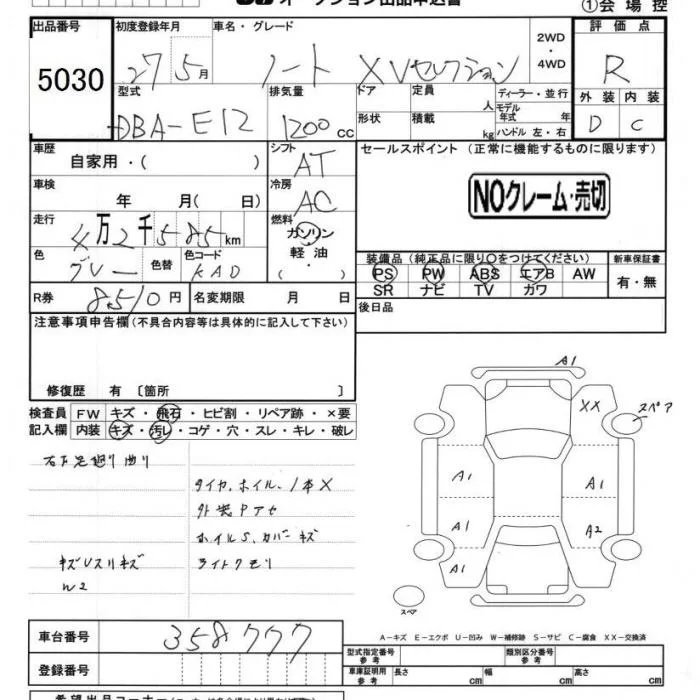 オークション出品申込書
①会場控
出品番号 初度登録年月 車名・グレード 2WD・4WD 評価点
5030 27 5月 ノート XVセレクション R
型式 排気量 ドア 定員 人 ディーラー・並行 外装 内装
モデル年式 年
DBA-E12 1200cc 形状 積載 kg ハンドル 左・右 D C
車歴 自家用・( ) シフト AT セールスポイント (正常に機能するものに限ります)
車検 年 月( 日) 冷房 AC NOクレーム・売切
走行 4万2千585km 燃料 ガソリン
軽油
・( )
色 グレー 色替 色コード KAD
装備品(純正品に限り○をつけてください) 新車保証書
PS PW ABS エアB AW 有・無
SR ナビ TV カワ
R券 8510円 名変期限 月 日 後日品
注意事項申告欄(不具合内容等は具体的に記入して下さい)
修復歴 有 〔箇所 〕
検査員 FW キズ・飛石・ヒビ割・リペア跡・×要
記入欄 内装 キズ・汚レ・コゲ・穴・スレ・キレ・破レ
右下足廻り曲り
タイヤ、ホイル、1本X
外装Pアセ
ホイルS、カバーキズ
キズUスリキズ ライトクモリ
W2
A1
XX スペア
A1 A1
A1 A2
A1
スペア
A−キズ E−エクボ U−凹み W−補修跡 S−サビ C−腐食 XX−交換済
車台番号 358777
型式指定番号 参考 類別区分番号 参考
登録番号 車庫証明用 参考 長さ cm 幅 cm 高さ cm